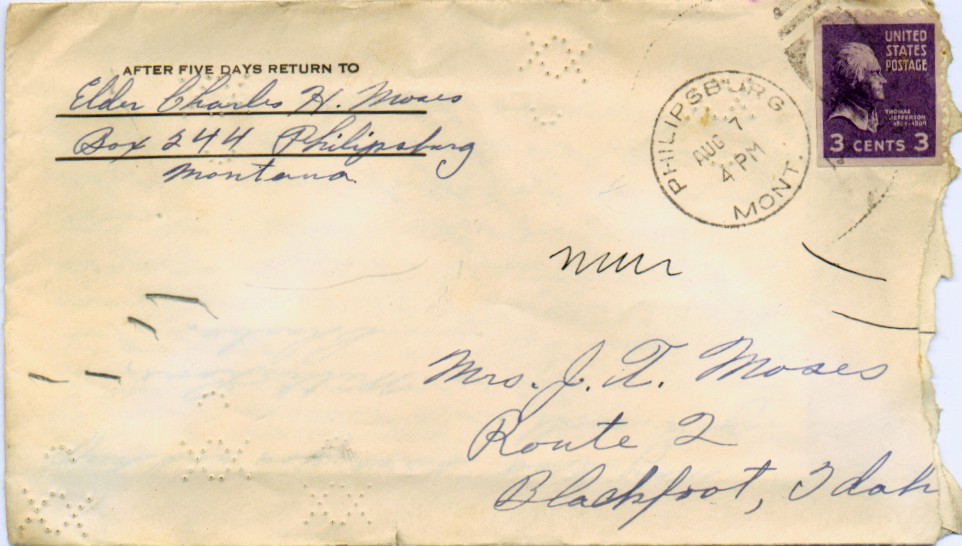 AFTER FIVE DAYS RETURN TO
Elder Charles H. Moses
Box 244 Philipsburg
Montana
PHILIPSBURG
AUG 7
4 PM
MONT.
UNITED
STATES
POSTAGE
THOMAS
JEFFERSON
3 CENTS 3
Mrs. J. T. Moses
Route 2
Blackfoot, Idah